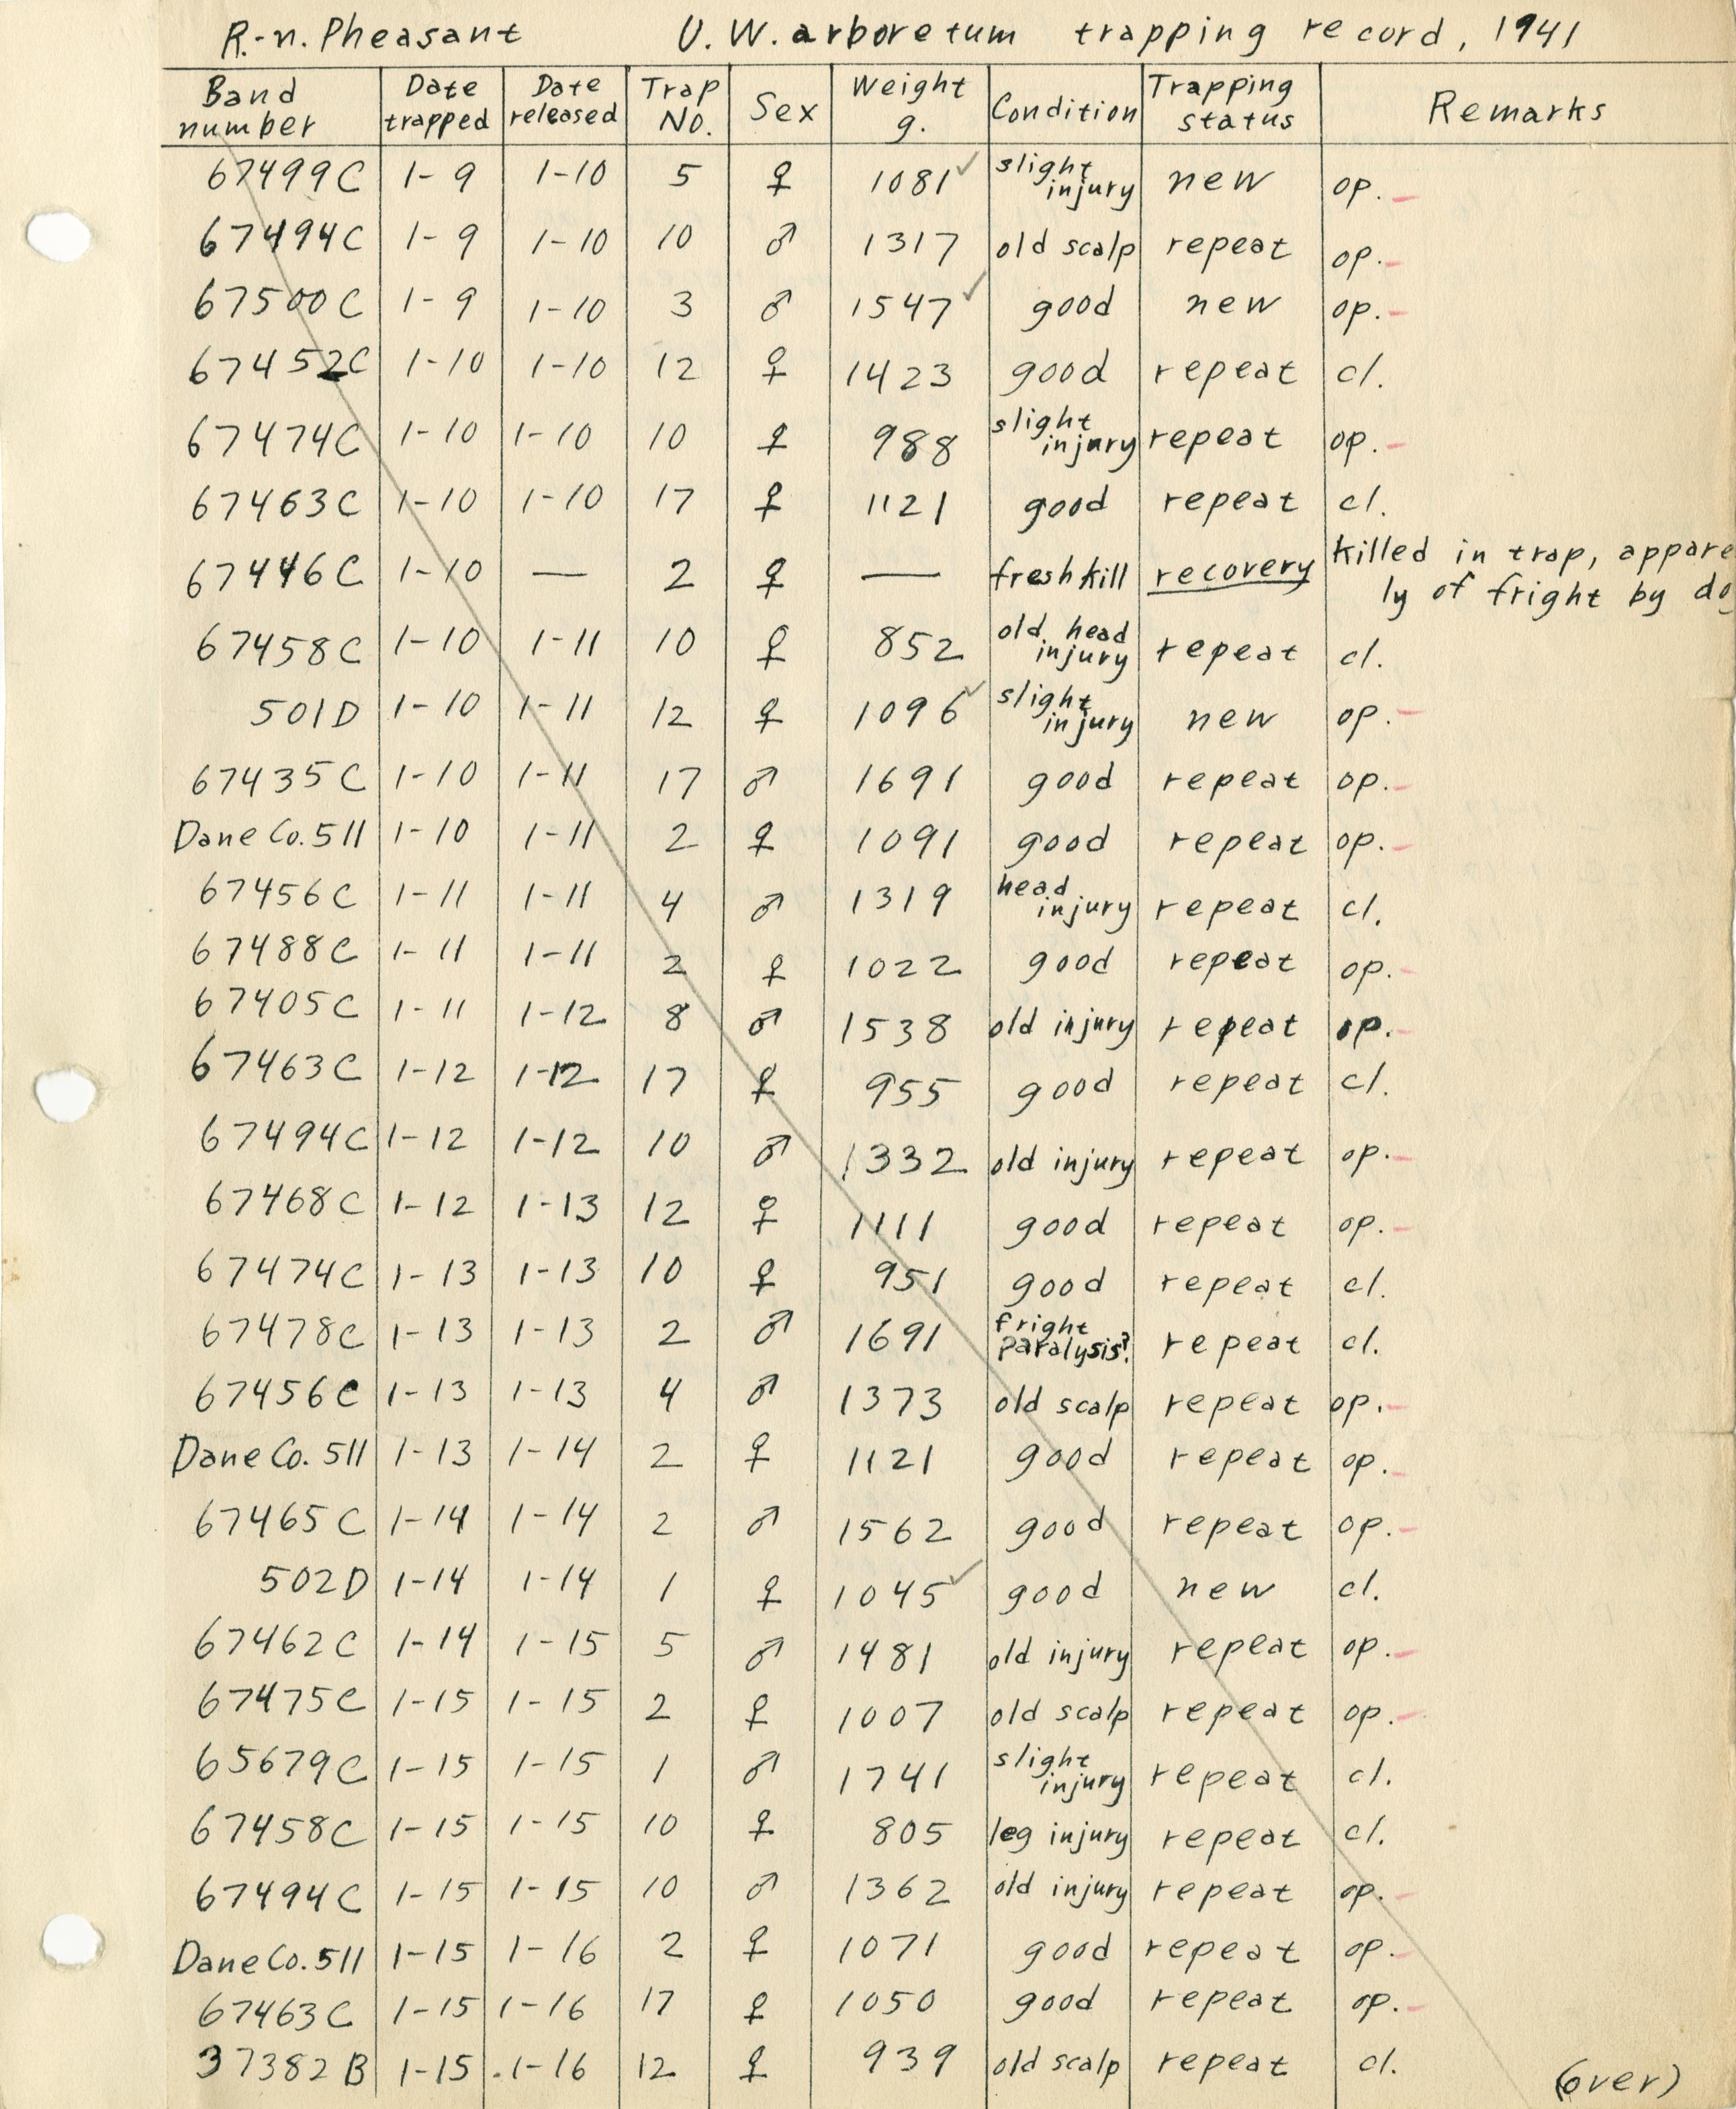 R.-n. Pheasant U. W. arboretum trapping record, 1941
Band number Date trapped Date released Trap No. Sex Weight g. Condition Trapping status Remarks
67499C 1-9 1-10 5 ♀ 1081 ✓ slight injury new op. –
67494C 1-9 1-10 10 ♂ 1317 old scalp repeat op. –
67500C 1-9 1-10 3 ♂ 1547 ✓ good new op. –
67452C 1-10 1-10 12 ♀ 1423 good repeat cl.
67474C 1-10 1-10 10 ♀ 988 slight injury repeat op. –
67463C 1-10 1-10 17 ♀ 1121 good repeat cl.
67446C 1-10 — 2 ♀ — fresh kill recovery killed in trap, appare ly of fright by do
67458C 1-10 1-11 10 ♀ 852 old head injury repeat cl.
501D 1-10 1-11 12 ♀ 1096 ✓ slight injury new op. –
67435C 1-10 1-11 17 ♂ 1691 good repeat op. –
Dane Co. 511 1-10 1-11 2 ♀ 1091 good repeat op. –
67456C 1-11 1-11 4 ♂ 1319 head injury repeat cl.
67488C 1-11 1-11 2 ♀ 1022 good repeat op. –
67405C 1-11 1-12 8 ♂ 1538 old injury repeat op. –
67463C 1-12 1-12 17 ♀ 955 good repeat cl.
67494C 1-12 1-12 10 ♂ 1332 old injury repeat op. –
67468C 1-12 1-13 12 ♀ 1111 good repeat op. –
67474C 1-13 1-13 10 ♀ 951 good repeat cl.
67478C 1-13 1-13 2 ♂ 1691 fright paralysis? repeat cl.
67456C 1-13 1-13 4 ♂ 1373 old scalp repeat op. –
Dane Co. 511 1-13 1-14 2 ♀ 1121 good repeat op. –
67465C 1-14 1-14 2 ♂ 1562 good repeat op. –
502D 1-14 1-14 1 ♀ 1045 ✓ good new cl.
67462C 1-14 1-15 5 ♂ 1481 old injury repeat op. –
67475C 1-15 1-15 2 ♀ 1007 old scalp repeat op. –
65679C 1-15 1-15 1 ♂ 1741 slight injury repeat cl.
67458C 1-15 1-15 10 ♀ 805 leg injury repeat cl.
67494C 1-15 1-15 10 ♂ 1362 old injury repeat op. –
Dane Co. 511 1-15 1-16 2 ♀ 1071 good repeat op. –
67463C 1-15 1-16 17 ♀ 1050 good repeat op. –
37382B 1-15 1-16 12 ♀ 939 old scalp repeat cl.
(over)